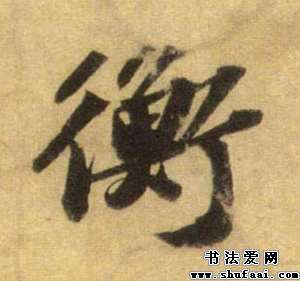 衡
书法爱网
www.shufaai.com